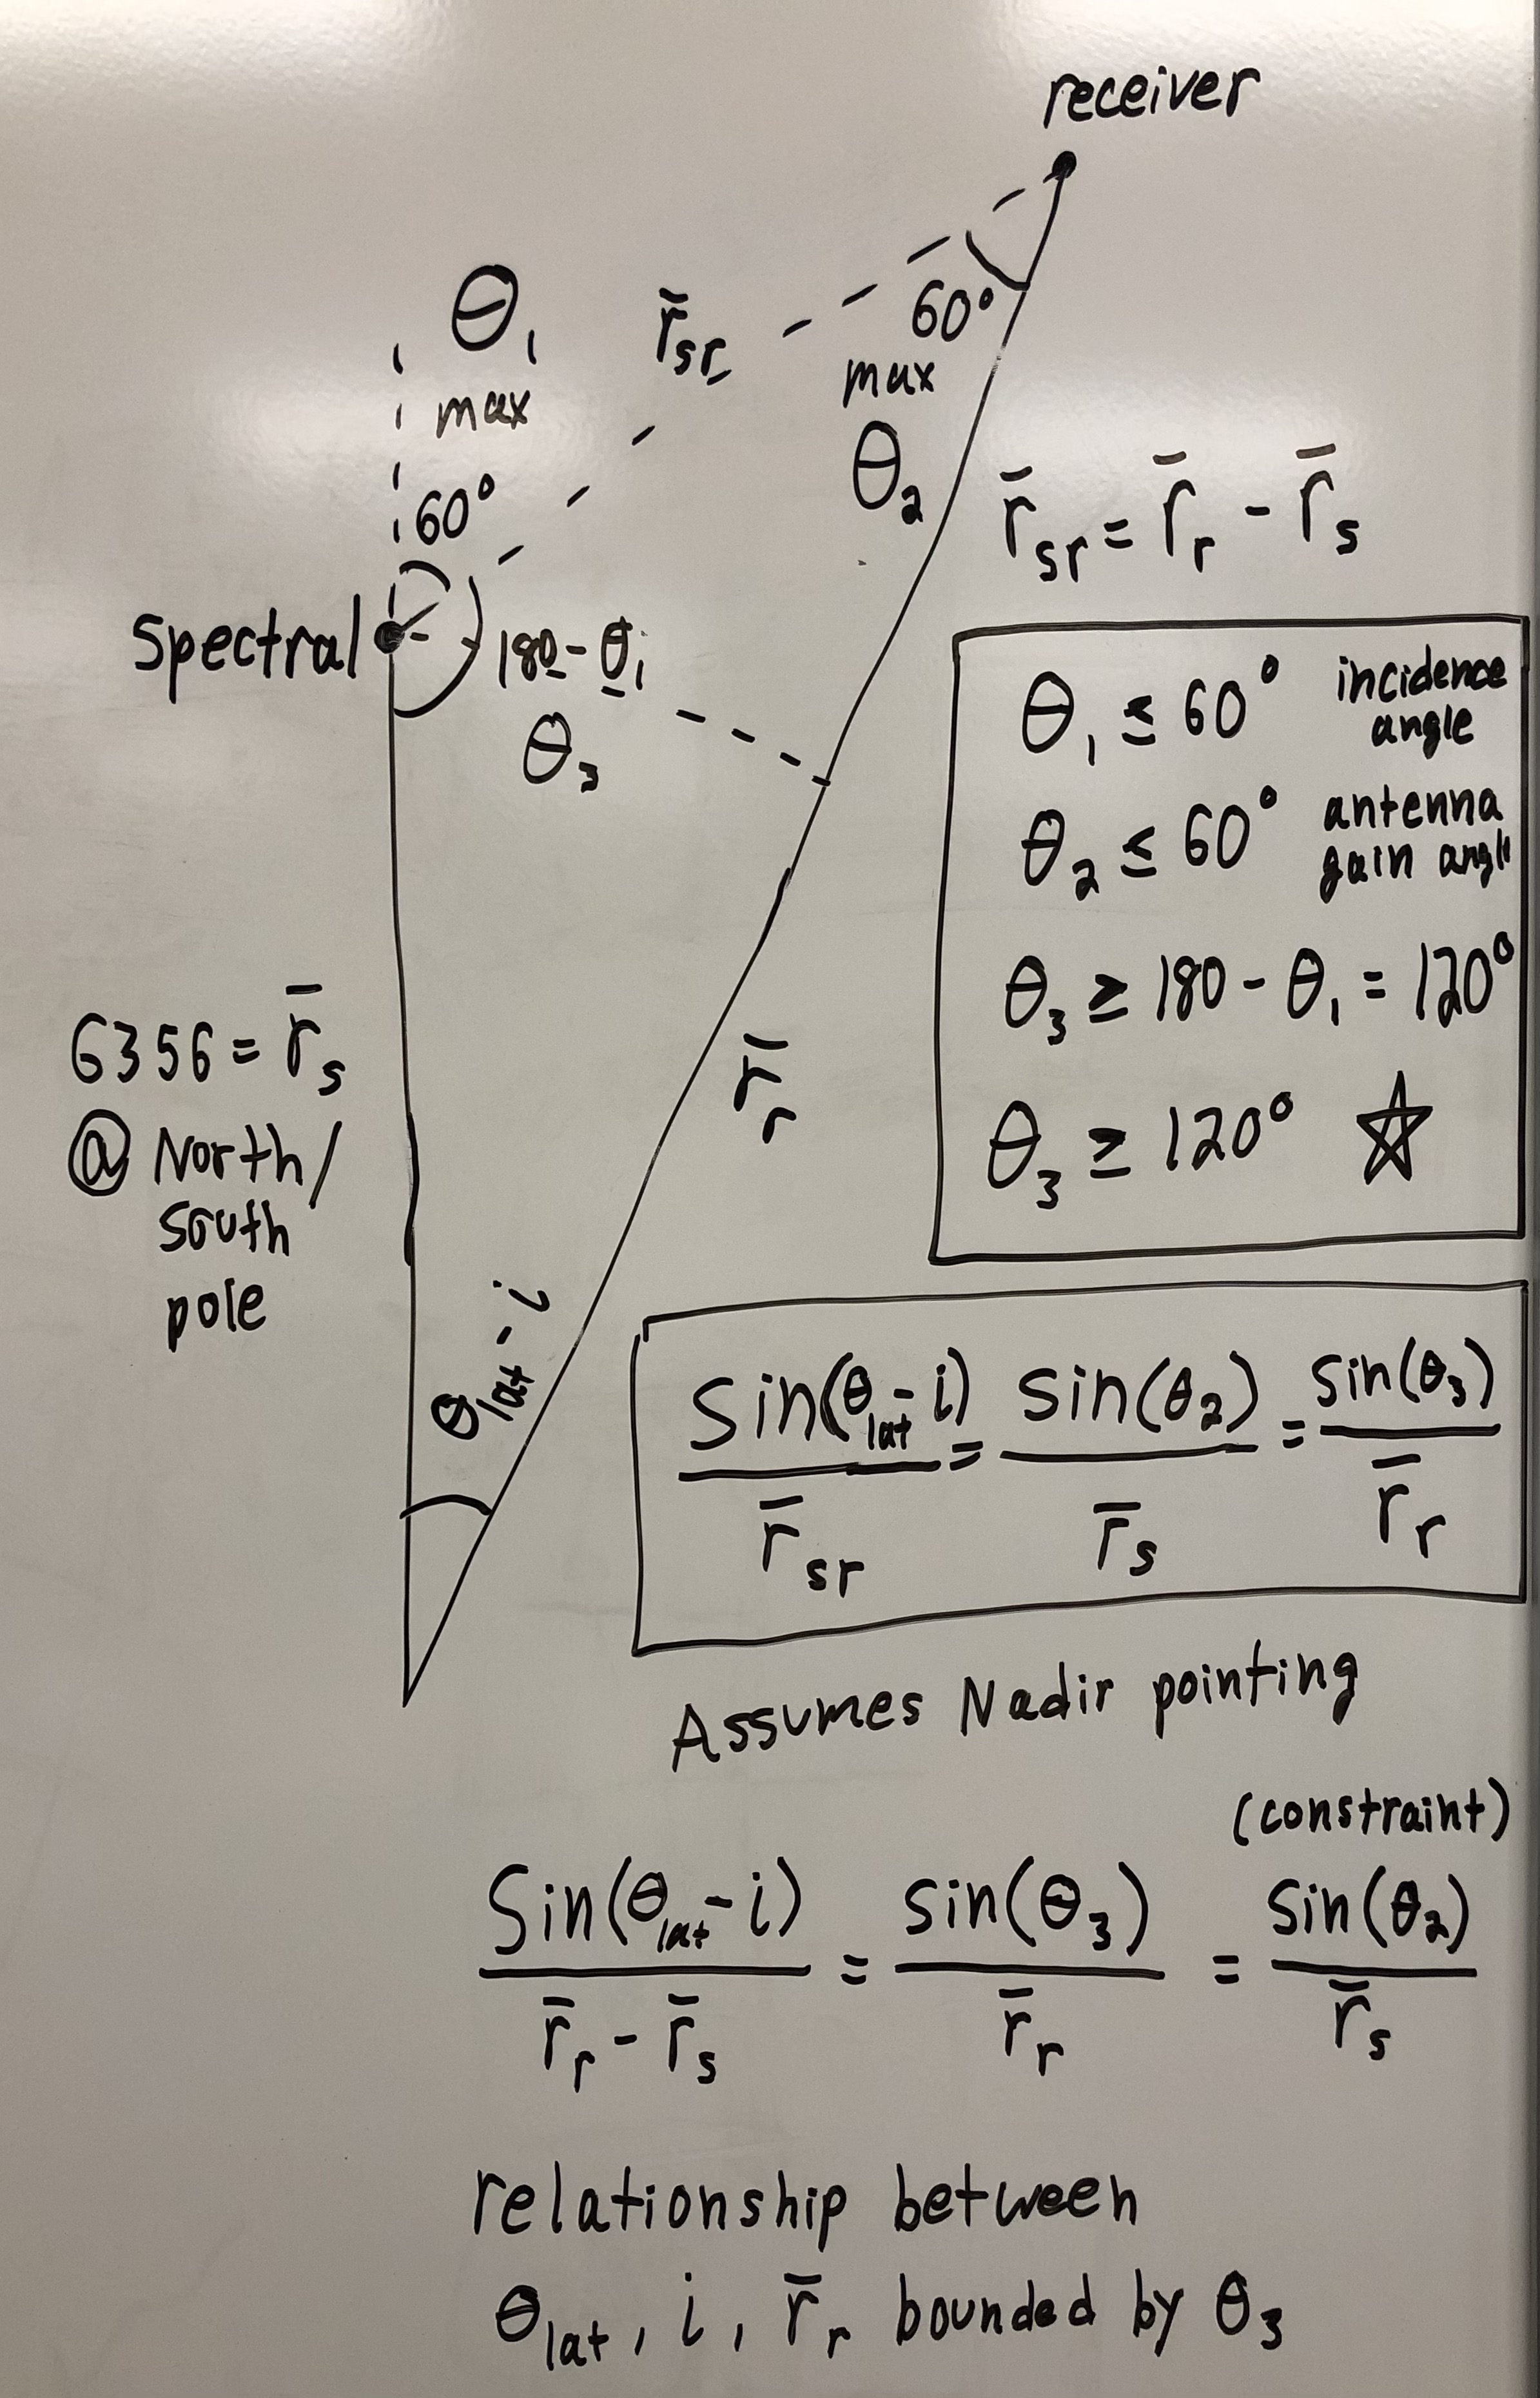 receiver
θ₁
max
60°
r̄sr
60°
max
θ₂
r̄sr = r̄r - r̄s
Spectral
180 - θ₁
θ₃
θ₁ ≤ 60° incidence angle
θ₂ ≤ 60° antenna gain angle
θ₃ ≥ 180 - θ₁ = 120°
θ₃ ≥ 120° ☆
6356 = r̄s
@ North/
South
pole
r̄r
θlat - i
Sin(θlat - i) / r̄sr = Sin(θ₂) / r̄s = Sin(θ₃) / r̄r
Assumes Nadir pointing
(constraint)
Sin(θlat - i) / r̄r - r̄s = Sin(θ₃) / r̄r = Sin(θ₂) / r̄s
relationship between
θlat, i, r̄r bounded by θ₃